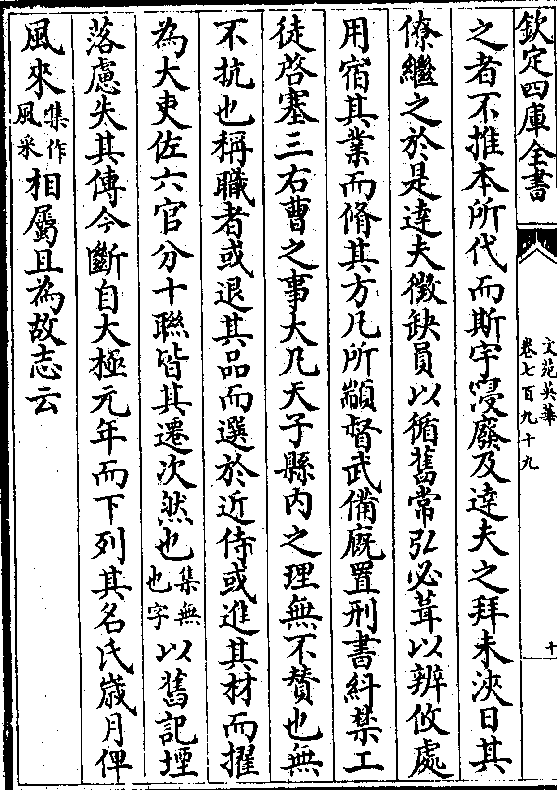 欽定四庫全書
文苑英華
卷七百九十九
十
之者不推本所代而斯宇寖廢及逹夫之拜未浹日其
僚繼之於是逹夫徵缺員以循舊常引必葺以辨攸處
用宿其業而脩其方凡所顓督武備廐置刑書糾禁工
徒啓塞三右曹之事大凡天子縣内之理無不贊也無
不抗也稱職者或退其品而選於近侍或進其材而擢
為大吏佐六官分十聯皆其遷次然也集無也字以舊記堙
落慮失其傳今斷自大極元年而下列其名氏歲月俾
風來集作風采相屬且為故志云